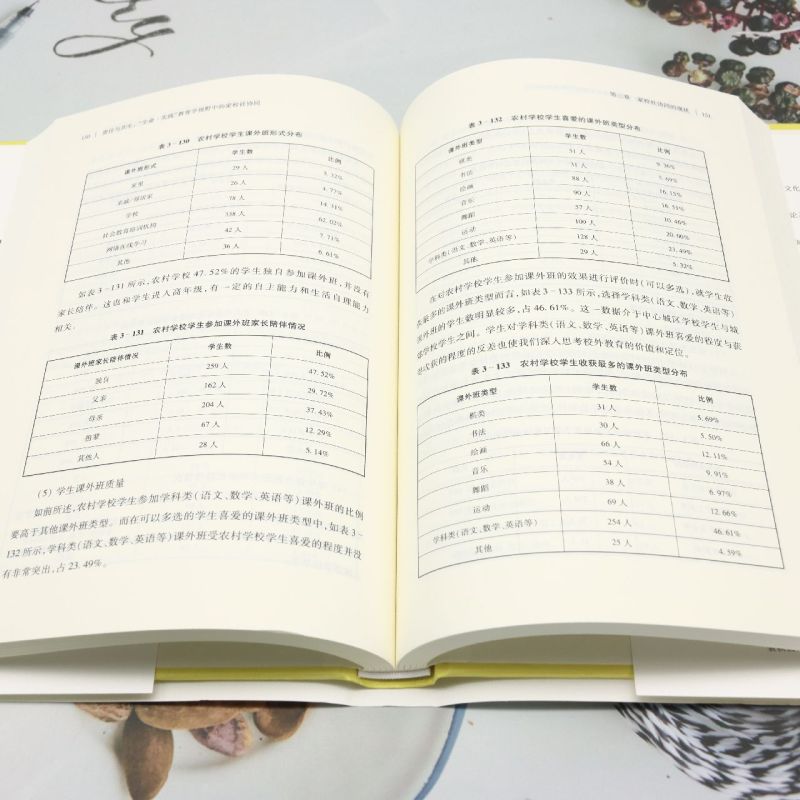 ry
150 责任与共生:“生命·实践”教育学视野中的家校社协同
表 3-130 农村学校学生课外班形式分布
课外班形式 学生数 比例
家里 29 人 5.32%
亲戚、邻居家 26 人 4.77%
学校 78 人 14.31%
社会教育培训机构 338 人 62.02%
网络在线学习 42 人 7.71%
其他 36 人 6.61%
如表 3-131 所示,农村学校 47.52%的学生独自参加课外班,并没有
家长陪伴。这也和学生进入高年级,有一定的自主能力和生活自理能力
相关。
表 3-131 农村学校学生参加课外班家长陪伴情况
课外班家长陪伴情况 学生数 比例
独自 259 人 47.52%
父亲 162 人 29.72%
母亲 204 人 37.43%
祖辈 67 人 12.29%
其他人 28 人 5.14%
(5) 学生课外班质量
如前所述,农村学校学生参加学科类(语文、数学、英语等)课外班的比例
要高于其他课外班类型。而在可以多选的学生喜爱的课外班类型中,如表 3-
132 所示,学科类(语文、数学、英语等)课外班受农村学校学生喜爱的程度并没
有非常突出,占 23.49%。
第三章 家校社协同的现状 151
表 3-132 农村学校学生喜爱的课外班类型分布
课外班类型 学生数 比例
棋类 51 人 9.36%
书法 31 人 5.69%
绘画 88 人 16.15%
音乐 90 人 16.51%
舞蹈 57 人 10.46%
运动 109 人 20.00%
学科类(语文、数学、英语等) 128 人 23.49%
其他 29 人 5.32%
在对农村学校学生参加课外班的效果进行评价时(可以多选),就学生收
获最多的课外班类型而言,如表 3-133 所示,选择学科类(语文、数学、英语等)
课外班的学生数明显较多,占 46.61%。这一数据介于中心城区学校学生与城
郊学校学生之间。学生对学科类(语文、数学、英语等)课外班喜爱的程度与获
得收获的程度的反差也使我们深入思考校外教育的价值和定位。
表 3-133 农村学校学生收获最多的课外班类型分布
课外班类型 学生数 比例
棋类 31 人 5.69%
书法 30 人 5.50%
绘画 66 人 12.11%
音乐 54 人 9.91%
舞蹈 38 人 6.97%
运动 69 人 12.66%
学科类(语文、数学、英语等) 254 人 46.61%
其他 25 人 4.59%
文化